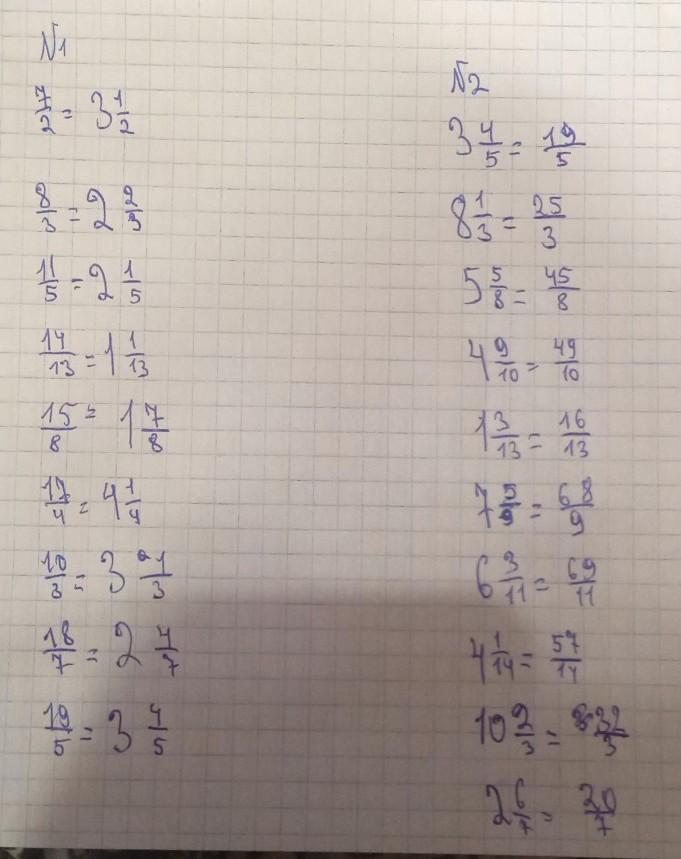 №1
7/2 = 3 1/2
8/3 = 2 2/3
11/5 = 2 1/5
14/13 = 1 1/13
15/8 = 1 7/8
17/4 = 4 1/4
10/3 = 3 1/3
18/7 = 2 4/7
19/5 = 3 4/5
№2
3 4/5 = 19/5
8 1/3 = 25/3
5 5/8 = 45/8
4 9/10 = 49/10
1 3/13 = 16/13
7 5/9 = 68/9
6 3/11 = 69/11
4 1/14 = 57/14
10 2/3 = 32/3
2 6/7 = 20/7